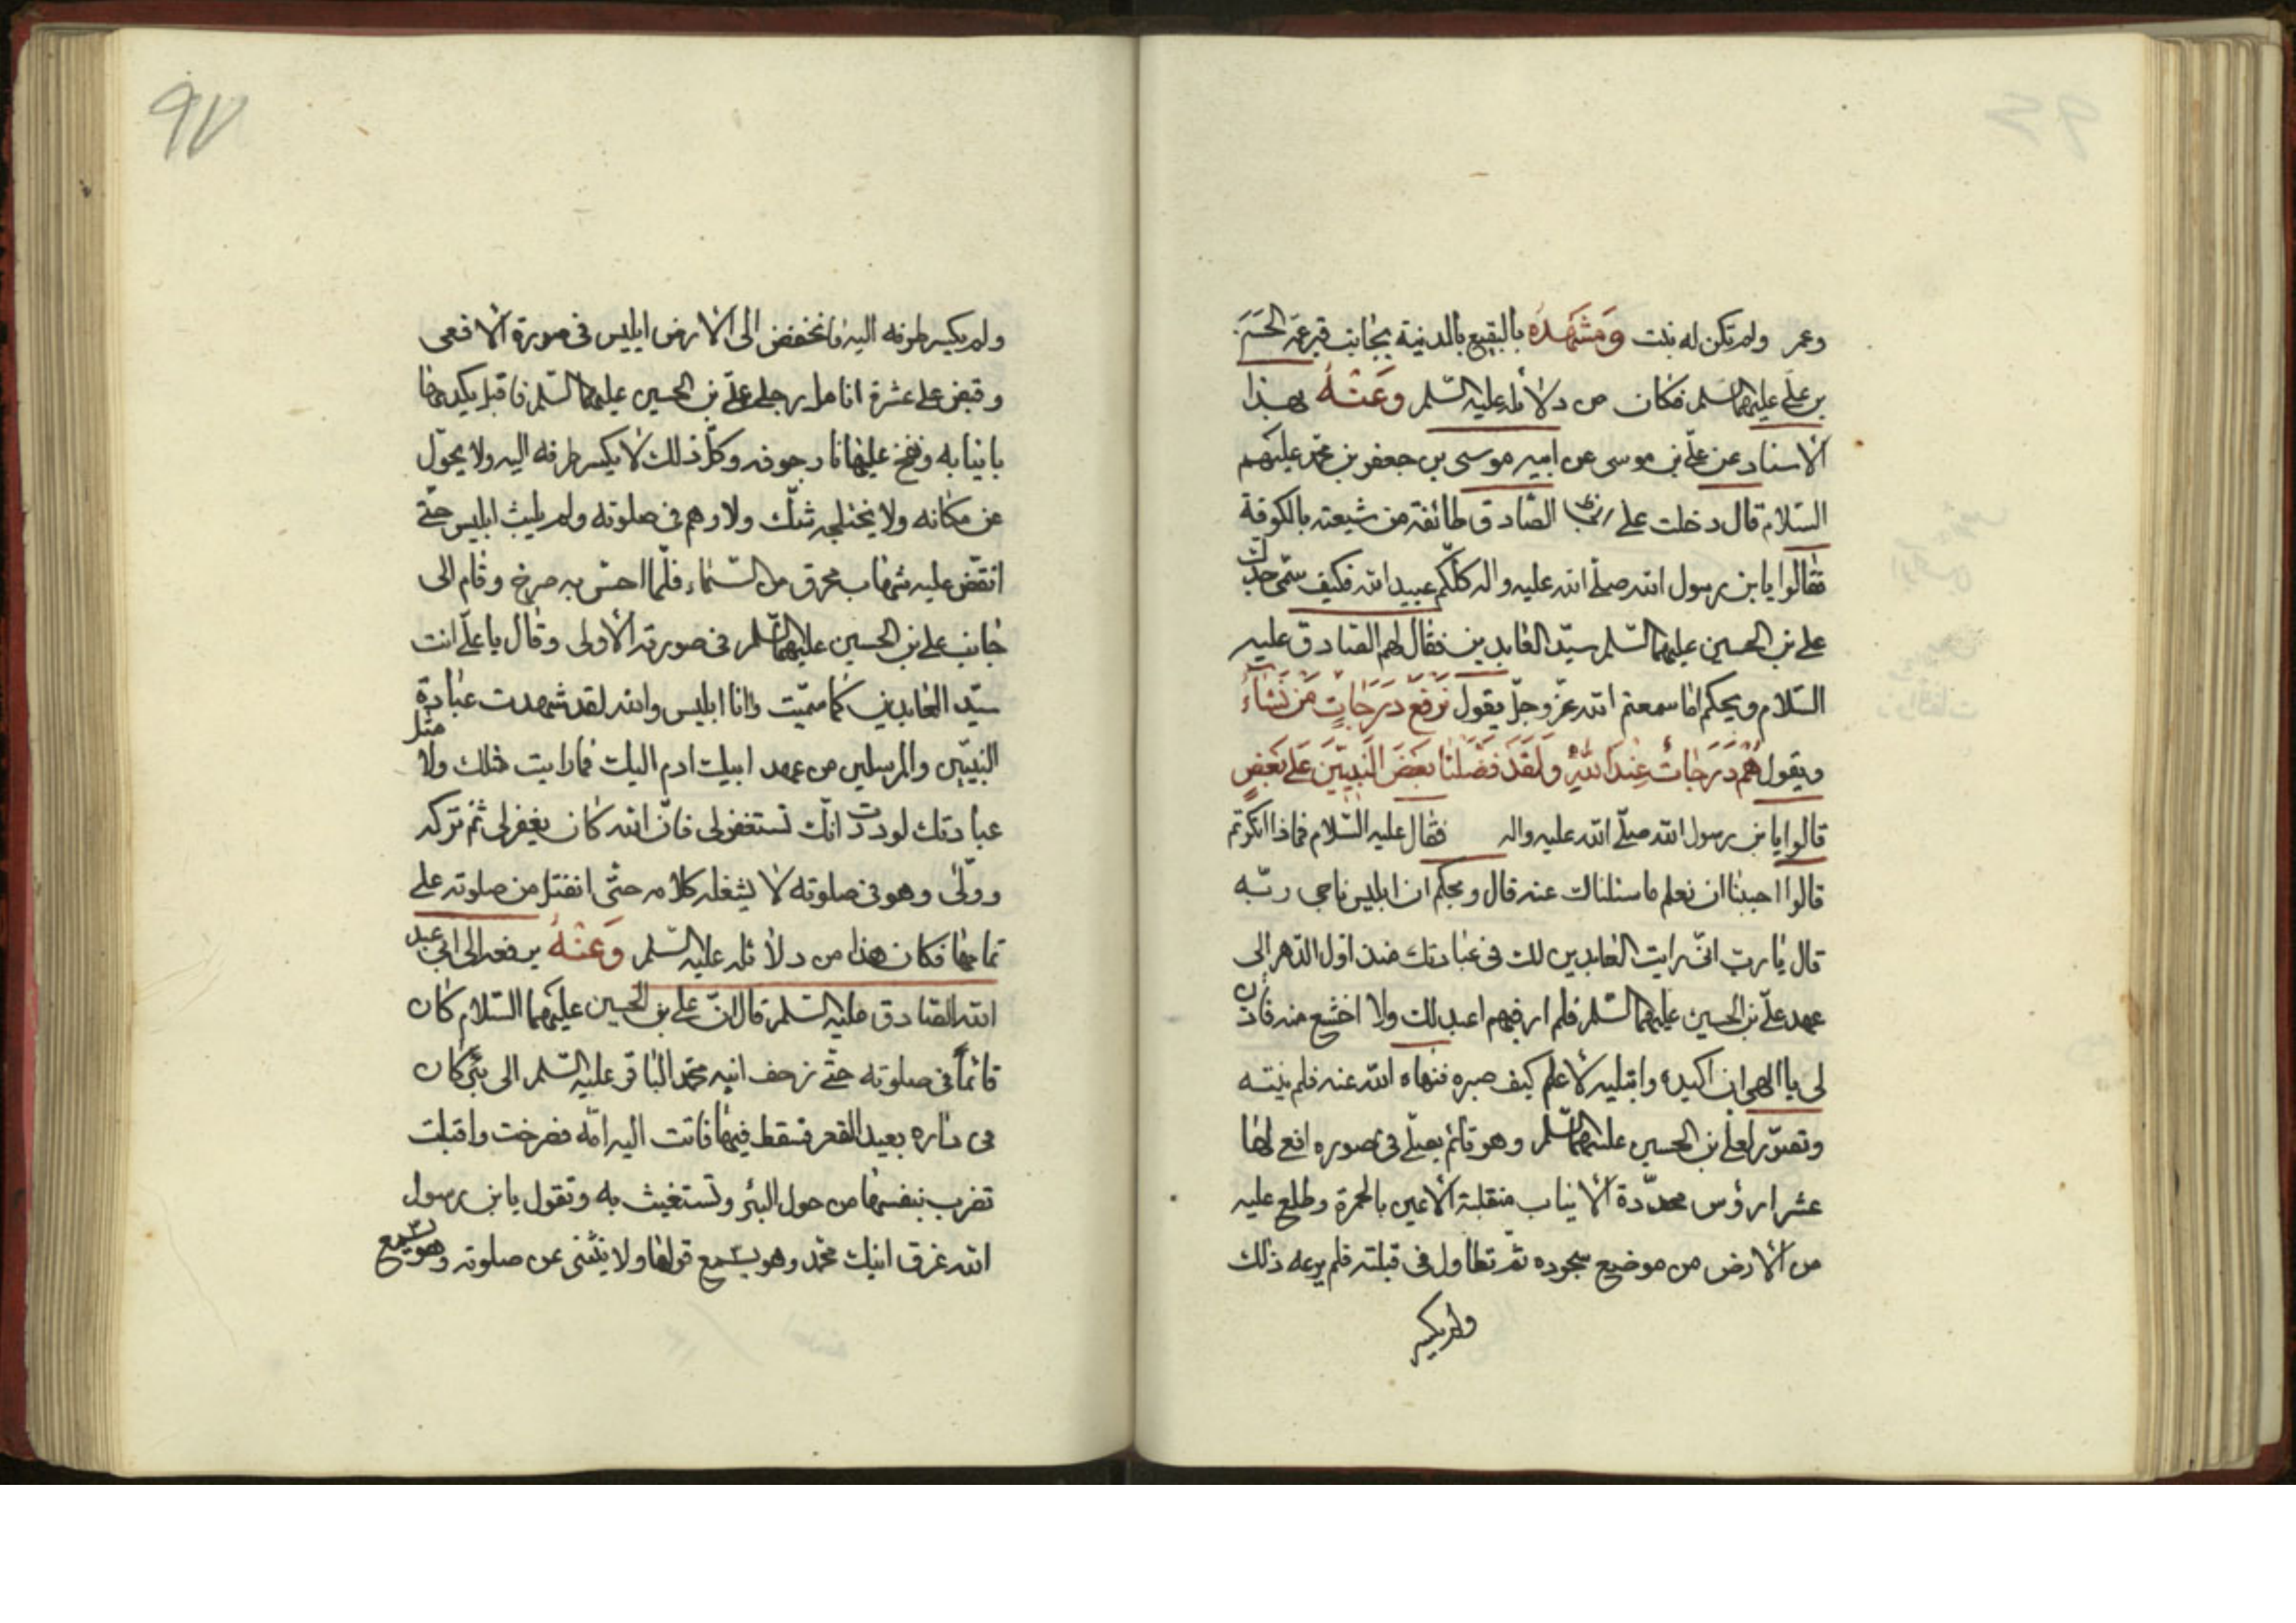 وعمر ولم تكن له بنت وَمَشْهَدُه بالبقيع بالمدينة بجانب قبر عمّه الحسن
بن علي عليهما السلم فكان من دلائله عليه السّلم وَعَنْهُ بهذا
الاسناد عن علّي بن موسى عن ابيه موسى بن جعفر بن محمّد عليهم
السّلام قال دخلت على الصّادق طائفة من شيعته بالكوفة
فقالوا يا بن رسول الله صلّى الله عليه واله كلّكم عبيد الله فكيف سمّى جدّك
على بن الحسين عليهما السّلم سيّد العابدين فقال لهم الصّادق عليه
السّلام ويحكم امّا سمعتم الله عزّ وجلّ يقول نَرفَعُ دَرَجاتٍ مَن نَشآءُ
ويقول هُم دَرَجاتٌ عِندَ اللهِ وَلَقَد فَضَّلنا بَعضَ النَّبِيّينَ عَلى بَعضٍ
قالوا يا بن رسول الله صلّى الله عليه واله فقال عليه السّلام فماذا انكرتم
قالوا احببنا ان نعلم ما سئلناك عنه قال ويحكم ان ابليس ناجى ربّه
قال يا ربّ انّى رايت العابدين لك فى عبادتك منذ اول الدّهر الى
عهد علّي بن الحسين عليهما السّلم فلم ار فيهم اعبد لك ولا اخشع منه فأذن
لى يا الهى ان اكيده وابتليه لأعلم كيف صبره فنهاه الله عنه فلم ينته
وتصوّر لعلى بن الحسين عليهما السّلم وهو قائم يصلّى فى صوره افعى لها
عشر ارؤس محدّدة الأنياب منقلبة الأعين بالحمرة وطلع عليه
من الأرض من موضع سجوده ثم تطاول فى قبلته فلم يرعه ذلك
ولم يكسر
٩٧
ولم يكسر طرفه اليه فانخفض الى الأرض ابليس فى صورة الأفعى
وقبض على عشرة انامل رجلى علّى بن الحسين عليهما السّلم فاقبل يكدمها
بانيابه وينفخ عليها نار جوفه وكلّ ذلك لا يكسر طرفه اليه ولا يحوّل
عن مكانه ولا يختلجه شكّ ولا وهم فى صلوته ولم يلبث ابليس حتّى
انقضّ عليه شهاب محرق من السّماء فلمّا احسّ به صرخ وقام الى
جانب على بن الحسين عليهما السّلم فى صورته الأولى وقال يا علّى انت
سيّد العابدين كما سمّيت وانا ابليس والله لقد شهدت عبادة
النبيّين والمرسلين من عهد ابيك ادم اليك فما رايت مثلك ولا مثل
عبادتك لوددت انّك تستغفر لى فانّ الله كان يغفر لى ثم تركه
وولّى وهو فى صلوته لا يشغله كلامه حتّى انفتل من صلوته على
تمامها فكان هذا من دلائله عليه السّلم وَعَنْهُ يرفعه الى ابى عبد
الله الصّادق عليه السّلم قال انّ على بن الحسين عليهما السّلام كان
قائماً فى صلوته حتّى زحف ابنه محمّد الباقر عليه السّلم الى بئر كان
فى داره بعيد القعر فسقط فيها فاتت اليه امّه فصرخت واقبلت
تضرب بنفسها من حول البئر وتستغيث به وتقول يا بن رسول
الله غرق ابنك محمّد وهو يسمع قولها ولا ينثنى عن صلوته وهو يسمع